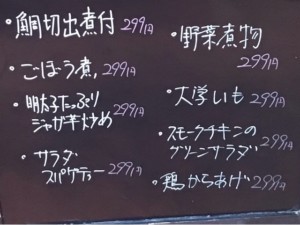 ・鯛切出煮付 299円
・ごぼう煮, 299円
・明太子たっぷり
ジャガ芋炒め 299円
・サラダ
スパゲティー 299円
・野菜煮物
299円
・大学いも 299円
・スモークチキンの
グリーンサラダ 299円
・鶏からあげ 299円